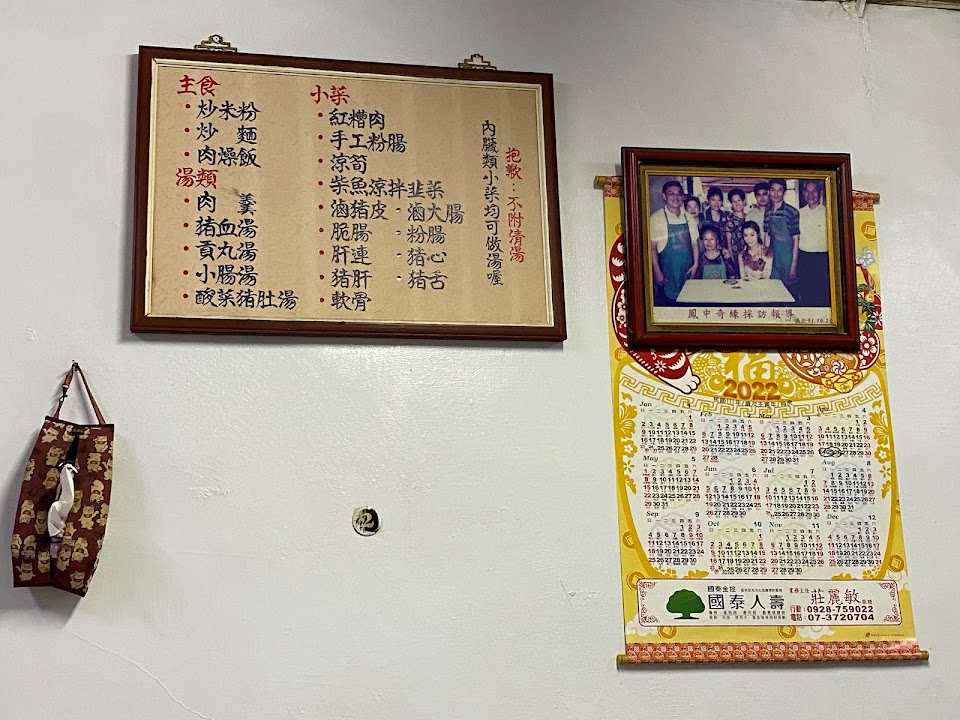 主食
・炒米粉
・炒　麵
・肉燥飯
湯類
・肉　羹
・豬血湯
・貢丸湯
・小腸湯
・酸菜猪肚湯
小菜
・紅糟肉
・手工粉腸
・涼筍
・柴魚涼拌韭菜
・滷猪皮・滷大腸
・脆腸・粉腸
・肝連・猪心
・猪肝・猪舌
・軟骨
抱歉：不附清湯
內臟類小菜均可做湯喔
鳳中奇緣採訪報導
福
2022
Jan 1
Feb
Mar
4
May 5
Jun 6
Jul 7
Aug 8
Sep 9
Oct 10
Nov 11
Dec 12
國泰金控
國泰人壽
業務主任 莊麗敏
行動：0928-759022
電話：07-3720704